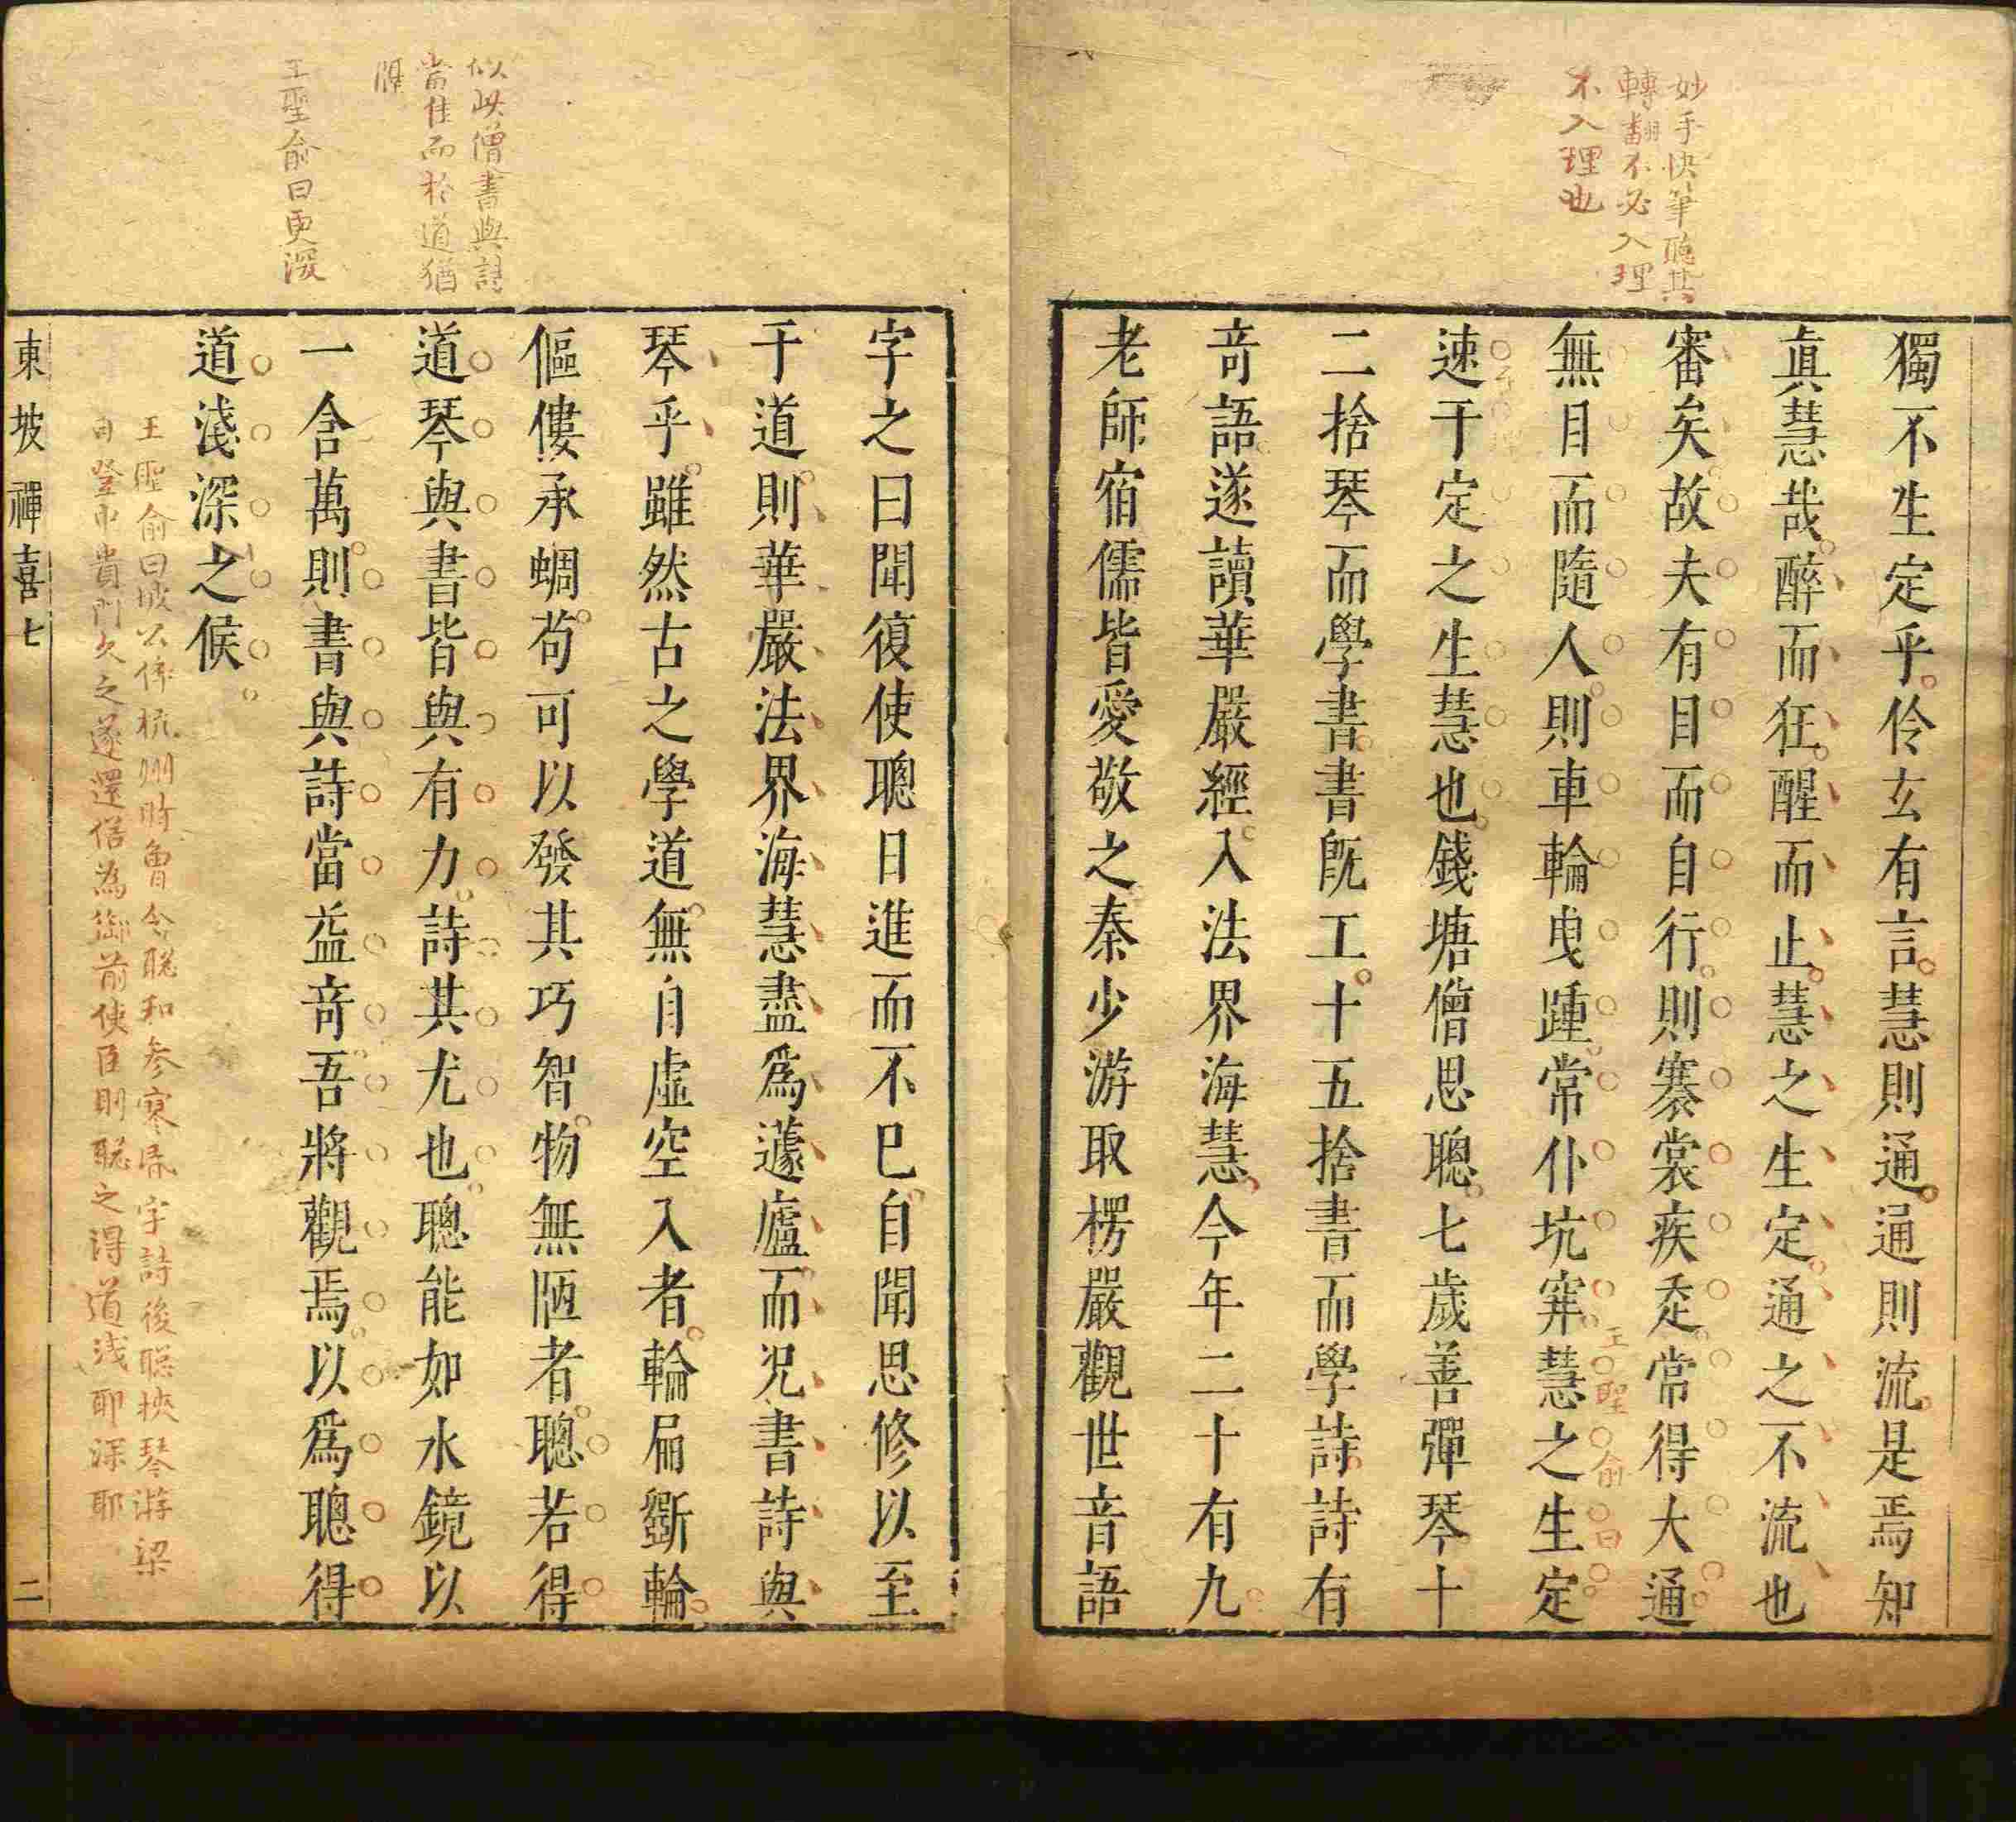 妙手快筆聽其
轉翻不必入理
不入理也
獨不生定乎伶玄有言慧則通通則流是焉知
眞慧哉醉而狂醒而止慧之生定通之不流也
審矣故夫有目而自行則褰裳疾走常得大通
無目而隨人則車輪曳踵常仆坑穽慧之生定
王聖俞曰
速于定之生慧也錢塘僧思聰七歲善彈琴十
二捨琴而學書書旣工十五捨書而學詩詩有
竒語遂讀華嚴經入法界海慧今年二十有九
老師宿儒皆愛敬之秦少游取楞嚴觀世音語
似此僧書與詩
當佳而於道猶
隔
王聖俞曰更深
字之曰聞復使聰日進而不已自聞思修以至
于道則華嚴法界海慧盡爲蘧廬而况書詩與
琴乎雖然古之學道無自虛空入者輪扁斵輪
傴僂承蜩苟可以發其巧智物無陋者聰若得
道琴與書皆與有力詩其尤也聰能如水鏡以
一含萬則書與詩當益竒吾將觀焉以爲聰得
道淺深之候
王聖俞曰坡公倅杭州時曾令聰和參寥昏字詩後聰挾琴游梁
日登中貴門久之遂還俗為御前使臣則聰之得道淺耶深耶
東坡禪喜七
二